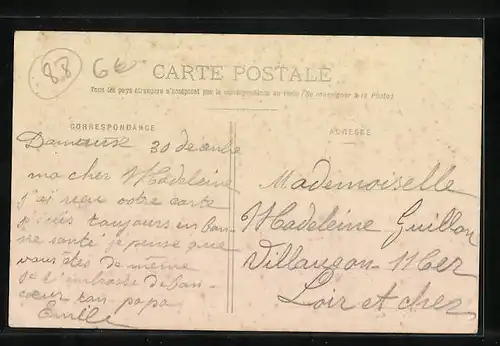 88
6€
CARTE POSTALE
Tous les pays étrangers n'acceptent pas la correspondance au recto (Se renseigner à la Poste)
CORRESPONDANCE
ADRESSE
30 decembre
ma cher Madeleine
j'ai reçu votre carte
j'suis toujours en bon-
ne santé je pense que
vous êtes de même
je t'embrasse de bon
cœur ton papa
Emile
Mademoiselle
Madeleine Guillon
Villaugon-Mer
Loir et cher